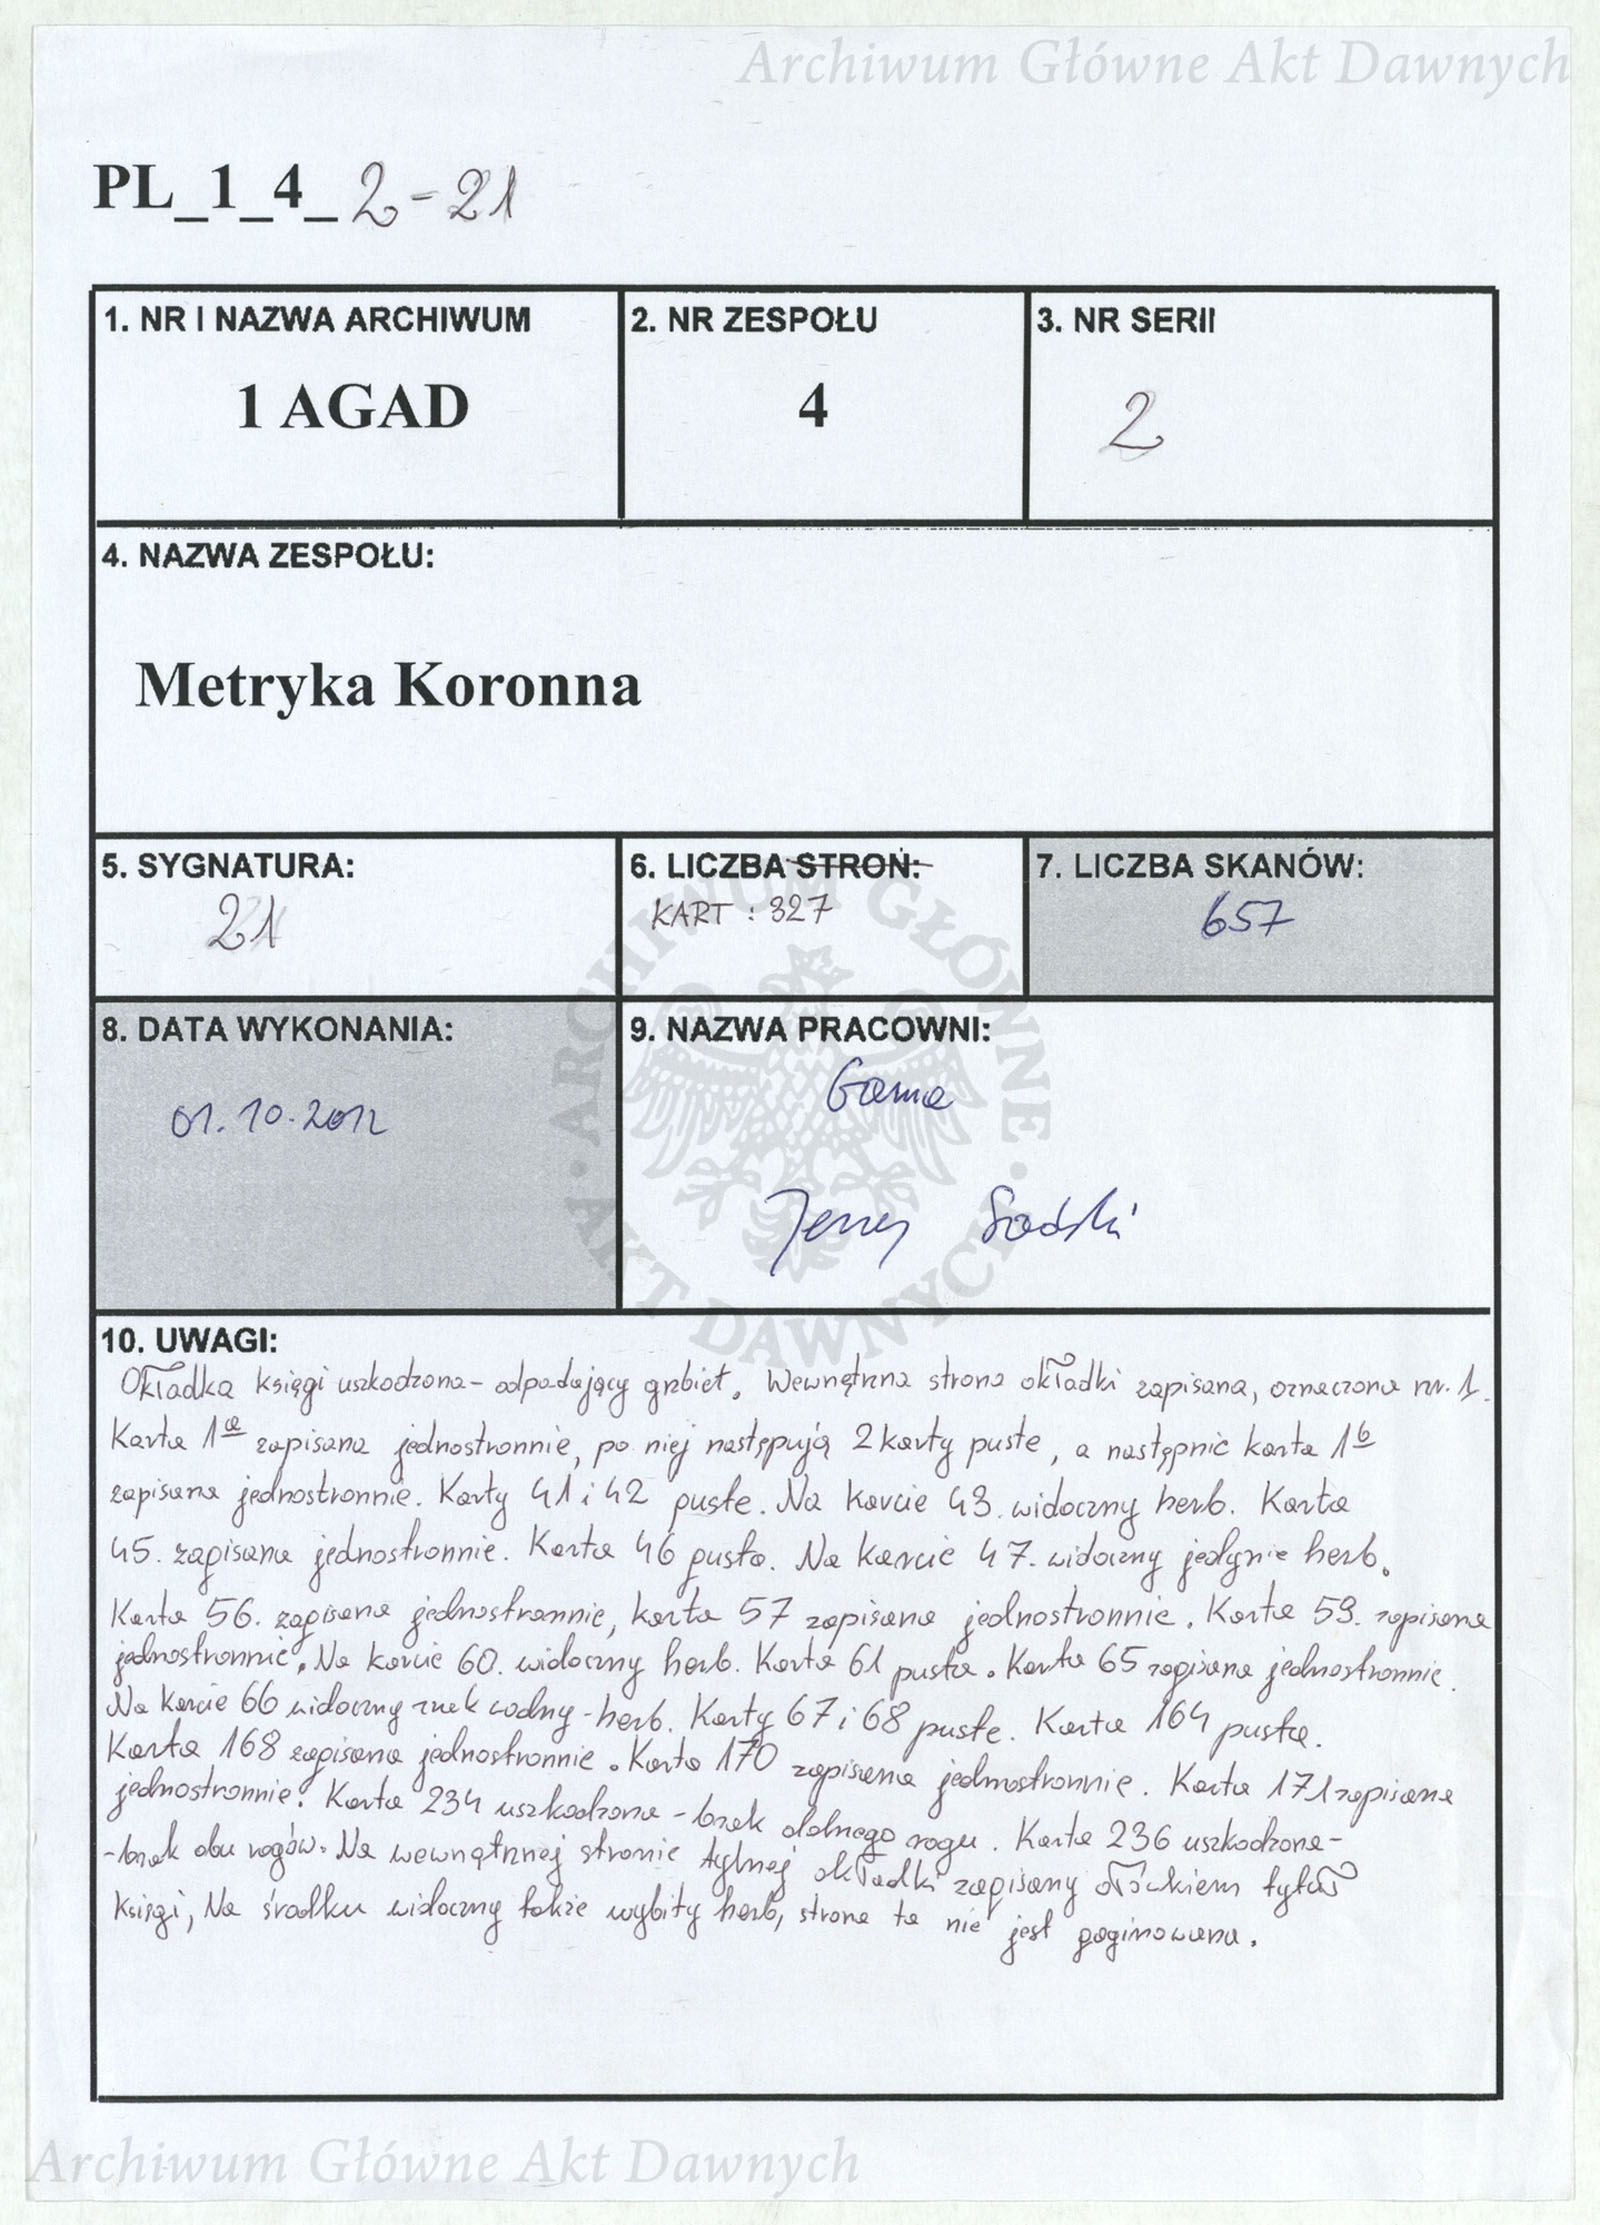 Archiwum Główne Akt Dawnych
PL_1_4_2-21
1. NR I NAZWA ARCHIWUM
1 AGAD
2. NR ZESPOŁU
4
3. NR SERII
2
4. NAZWA ZESPOŁU:
Metryka Koronna
5. SYGNATURA:
21
6. LICZBA STRON:
KART : 327
7. LICZBA SKANÓW:
657
8. DATA WYKONANIA:
01.10.2012
9. NAZWA PRACOWNI:
Gama
Jerzy
ARCHIWUM GŁÓWNE AKT DAWNYCH
10. UWAGI:
Okładka księgi uszkodzona - odpadający grzbiet. Wewnętrzna strona okładki zapisana, oznaczona nr. 1.
Karta 1a zapisana jednostronnie, po niej następują 2 karty puste, a następnie karta 1b
zapisana jednostronnie. Karty 41 i 42 puste. Na karcie 43. widoczny herb. Karta
45. zapisana jednostronnie. Karta 46 pusta. Na karcie 47. widoczny jedynie herb.
Karta 56. zapisana jednostronnie, karta 57 zapisana jednostronnie. Karta 59. zapisana
jednostronnie. Na karcie 60. widoczny herb. Karta 61 pusta. Karta 65 zapisana jednostronnie.
Na karcie 66 widoczny znak wodny - herb. Karty 67 i 68 puste. Karta 164 pusta.
Karta 168 zapisana jednostronnie. Karta 170 zapisana jednostronnie. Karta 171 zapisana
jednostronnie. Karta 234 uszkodzona - brak dolnego rogu. Karta 236 uszkodzona -
- brak obu rogów. Na wewnętrznej stronie tylnej okładki zapisany ołówkiem tytuł
księgi, Na środku widoczny także wybity herb, strona ta nie jest paginowana.
Archiwum Główne Akt Dawnych